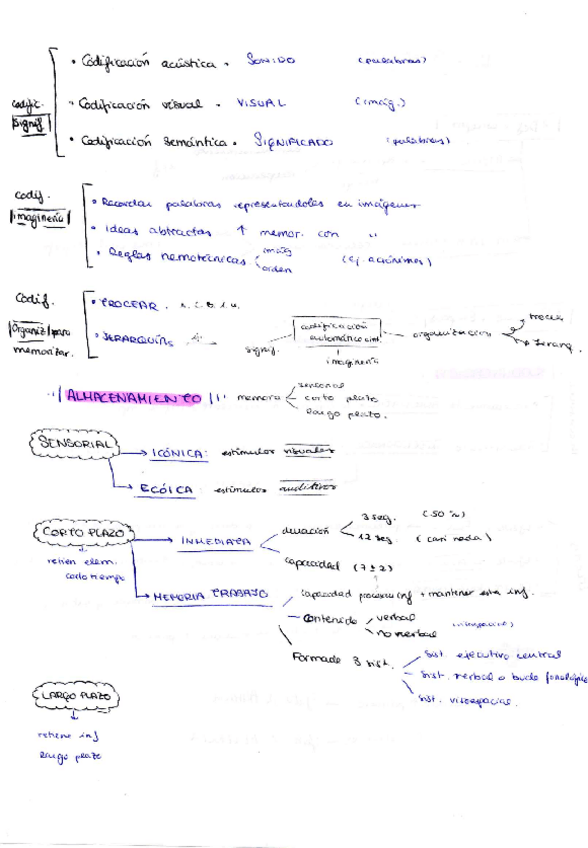 • Codificación acústica. SONIDO (palabras)
codific. signif
• Codificación visual. VISUAL (imág.)
• Codificación semántica. SIGNIFICADO (palabras)
codif. imaginería
• Recordar palabras representandoles en imágenes
• Ideas abstractas ↑ memor. con "
• Reglas nemotécnicas imág orden (ej. acrónimos)
Codif. Organiz/para memorizar.
• TROCEAR.
• JERARQUÍAS
codificación automáticam.
signif.
imaginería
organización
trocea
Jerarq.
ALMACENAMIENTO memoria
sensorial
corto plazo
largo plazo.
SENSORIAL → ICÓNICA: estímulos visuales
→ ECÓICA: estímulos auditivos
CORTO PLAZO → INMEDIATA
retien elem. corto tiempo
duración 3 seg. (50%)
12 seg (casi nada)
capacidad (7 ± 2)
→ MEMORIA TRABAJO
capacidad procesa inf + mantener esta inf.
contenido verbal
no verbal
Formada 3 sist.
sist. ejecutivo central
sist. verbal o bucle fonológico
sist. visoespacial.
LARGO PLAZO
retiene inf
largo plazo